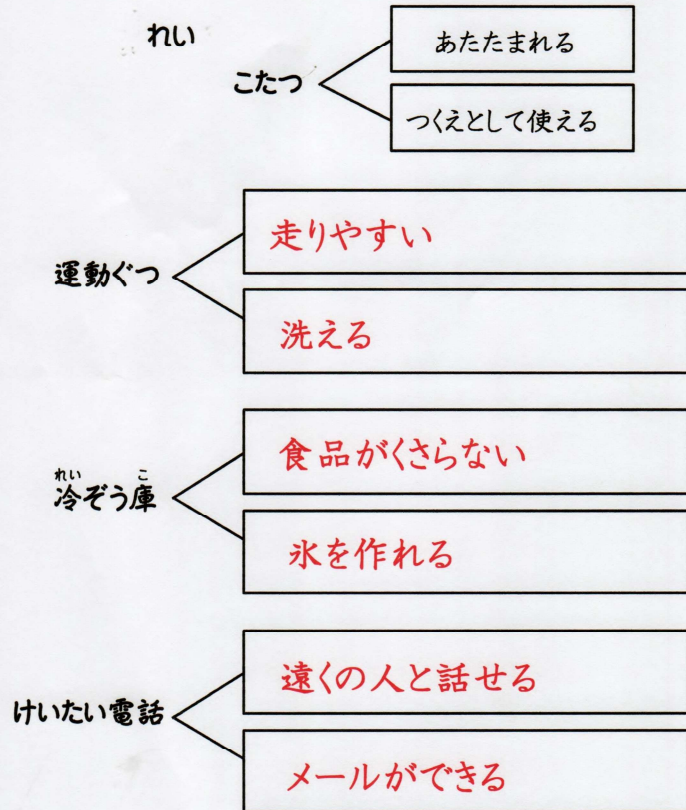 れい
こたつ
あたたまれる
つくえとして使える
運動ぐつ
走りやすい
洗える
れい こ
冷ぞう庫
食品がくさらない
氷を作れる
けいたい電話
遠くの人と話せる
メールができる